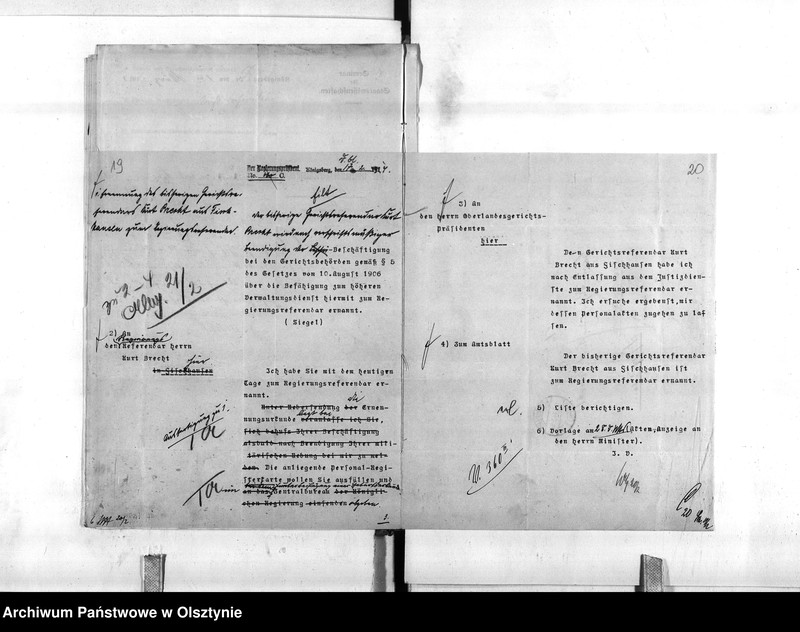 19
Der Regierungspräsident.
Königsberg, den
Ernennung des bisherigen Gerichtsre-
ferendars Kurt Brecht aus Fisch-
hausen zum Regierungsreferendar.
Der bisherige Gerichtsreferendar Kurt
Brecht wird nach vorschriftsmäßiger
Beendigung der Beschäftigung
bei den Gerichtsbehörden gemäß § 5
des Gesetzes vom 10. August 1906
über die Befähigung zum höheren
Verwaltungsdienst hiermit zum Re-
gierungsreferendar ernannt.
(Siegel)
zu 2-4
21/2
2) An
den Referendar Herrn
Kurt Brecht
hier
in Fischhausen
Ich habe Sie mit dem heutigen
Tage zum Regierungsreferendar er-
nannt.
Unter Uebersendung der die Ernen-
nungsurkunde veranlasse ich Sie,
sich behufs Ihrer Beschäftigung
alsbald nach Beendigung Ihrer mili-
tärischen Uebung bei mir zu mel-
den. Die anliegende Personal-Regi-
sterkarte wollen Sie ausfüllen und
an das Zentralbureau der Königli-
chen Regierung einsenden
20
3) An
den Herrn Oberlandesgerichts-
Präsidenten
hier
Den Gerichtsreferendar Kurt
Brecht aus Fischhausen habe ich
nach Entlassung aus dem Justizdien-
ste zum Regierungsreferendar er-
nannt. Ich ersuche ergebenst, mir
dessen Personalakten zugehen zu las
sen.
4) Zum Amtsblatt
Der bisherige Gerichtsreferendar
Kurt Brecht aus Fischhausen ist
zum Regierungsreferendar ernannt.
5) Liste berichtigen.
6) Vorlage am Anzeige an
den Herrn Minister).
J. V.
Archiwum Państwowe w Olsztynie